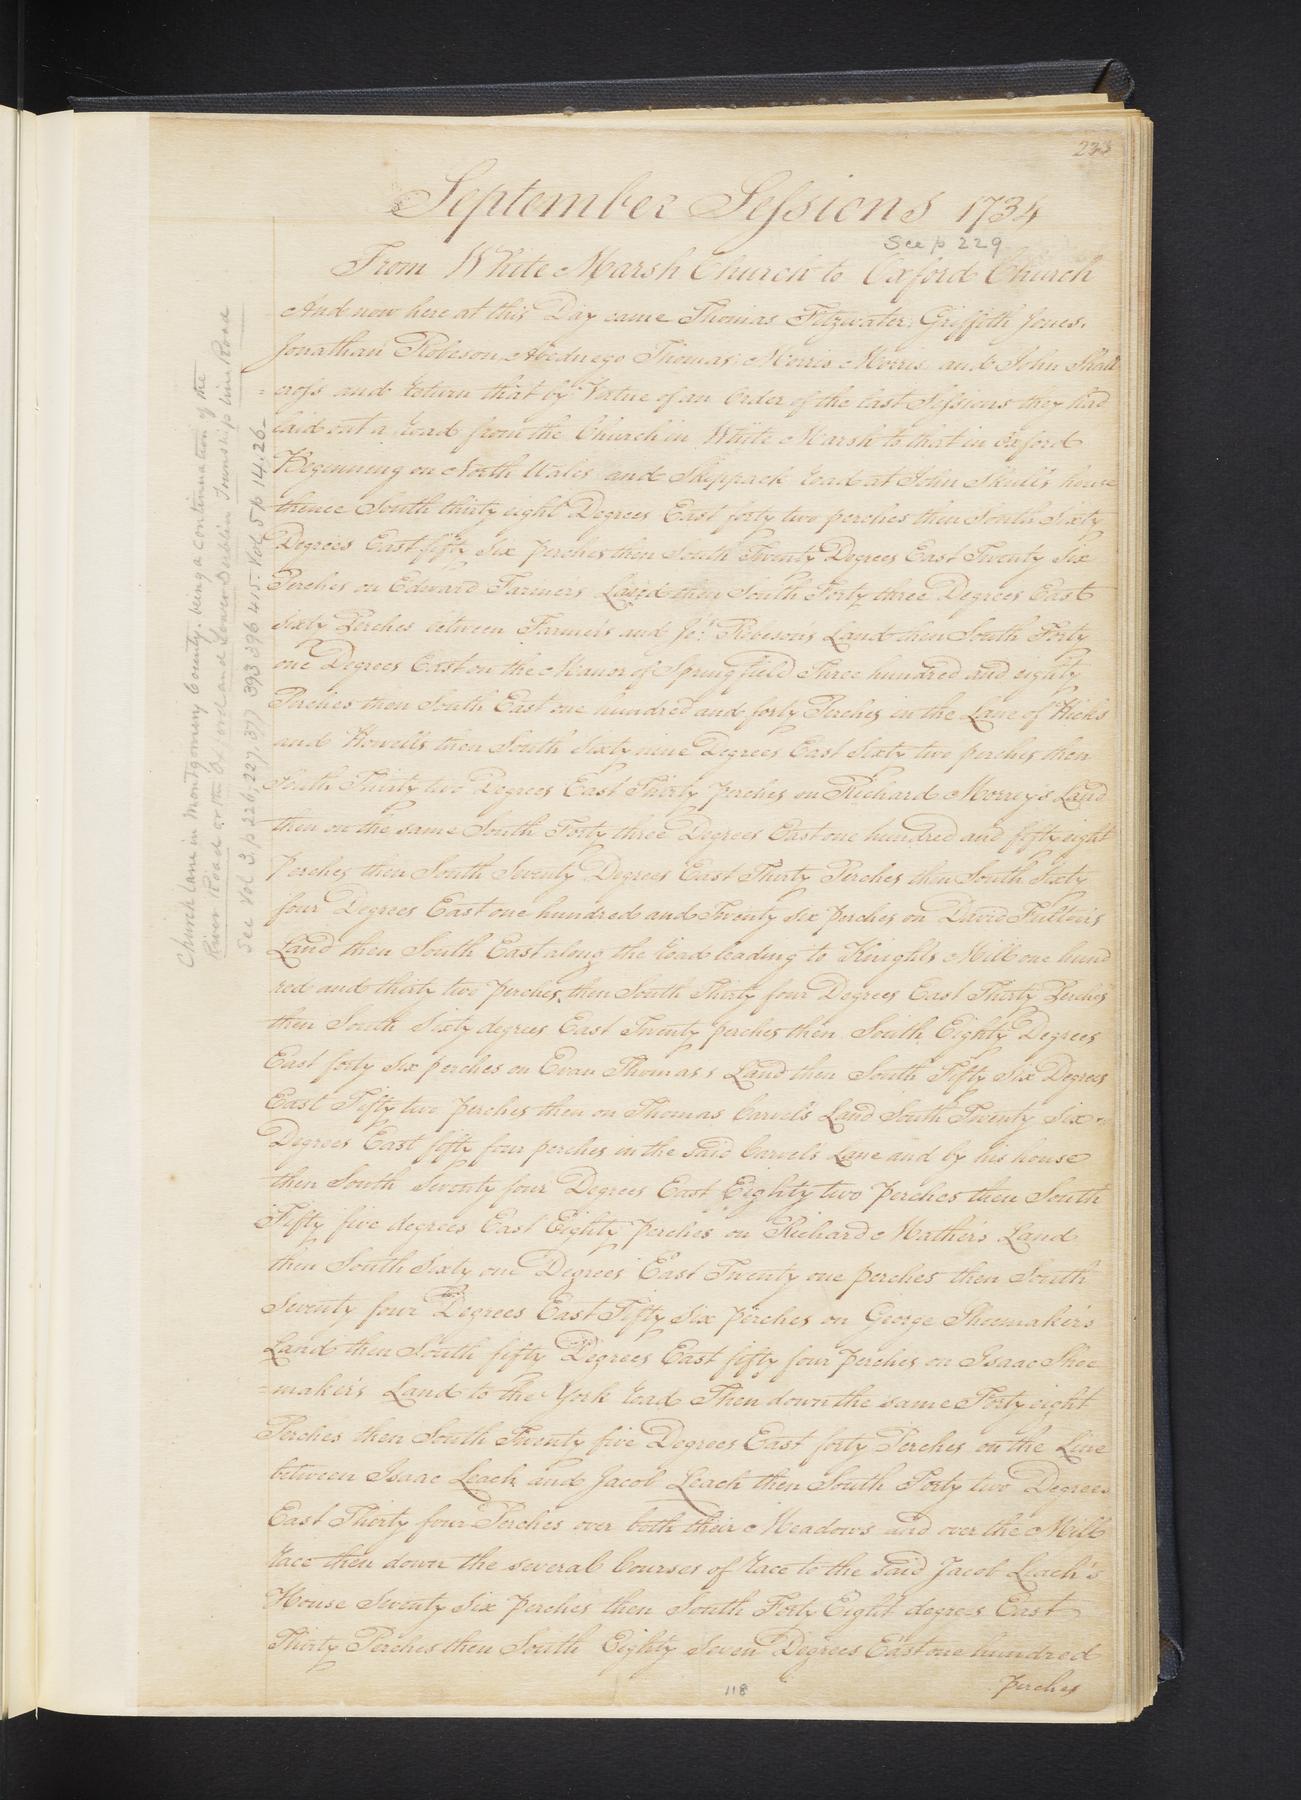 233
September Sessions 1734
See p 229
From White Marsh Church to Oxford Church
And now here at this Day came Thomas Fitzwater, Griffith Jones,
Jonathan Robeson Abednego Thomas, Morris Morris, and John Shall
= cross and return that by Virtue of an Order of the last Sessions they had
laid out a road from the Church in White Marsh to that in Oxford
Beginning on North Wales and Skippack road at John Skull's house
thence South thirty eight Degrees East forty two perches then South Sixty
Degrees East fifty Six perches then South Twenty Degrees East Twenty Six
Perches on Edward Farmer's Land then South Forty three Degrees East
Sixty Perches between Farmer's and Jo.ⁿ Robeson's Land then South Forty
one Degrees East on the Manor of Springfield Three hundred and eighty
Perches then South East one hundred and forty Perches in the Lane of Hicks
and Howell's then South Sixty nine Degrees East Sixty two perches then
South Thirty two Degrees East Thirty perches on Richard Morrey's Land
then on the same South Forty three Degrees East one hundred and fifty eight
Perches then South Seventy Degrees East Thirty Perches then South Sixty
four Degrees East one hundred and Twenty Six perches on David Fulton's
Land then South East along the road leading to Knight's Mill one hund
red and thirty two perches, then South Thirty four Degrees East Thirty Perches
then South Sixty degrees East Twenty perches then South Eighty Degrees
East forty Six perches on Evan Thomas's Land then South Fifty Six Degrees
East Fifty two perches then on Thomas Carvel's Land South Twenty Six
Degrees East fifty four perches in the said Carvel's Lane and by his house
then South Seventy four Degrees East Eighty two perches then South
Fifty five degrees East Eighty perches on Richard Mather's Land
then South Sixty one Degrees East Twenty one perches then South
Seventy four Degrees East Fifty Six perches on George Shoemaker's
Land then South fifty Degrees East fifty four perches on Isaac Shoe
= maker's Land to the York road Then down the same Forty eight
Perches then South Twenty five Degrees East forty Perches on the Line
between Isaac Leach and Jacob Leach then South Forty two Degrees
East Thirty four Perches over both their Meadows and over the Mill
race then down the several Courses of race to the said Jacob Leach's
House Seventy Six perches then South Forty Eight degrees East
Thirty Perches then South Eighty Seven Degrees East one hundred
perches
118
Church Lane in Montgomery County. being a continuation of the
River Road or the Oxford and Lower Dublin Township line Road
See Vol 3. p 226. 227. 377 393 396 415. Vol. 5 p 14. 26